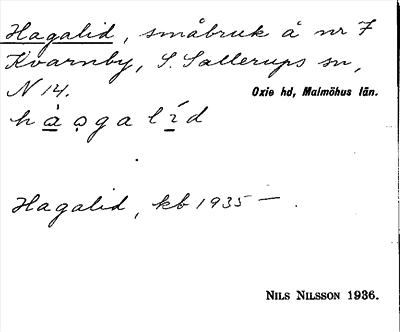 Hagalid, småbruk å nr 7
Kvarnby, S. Sallerups sn,
N 14. Oxie hd, Malmöhus län.
hào̧galíd
Hagalid, kb 1935 — .
NILS NILSSON 1936.